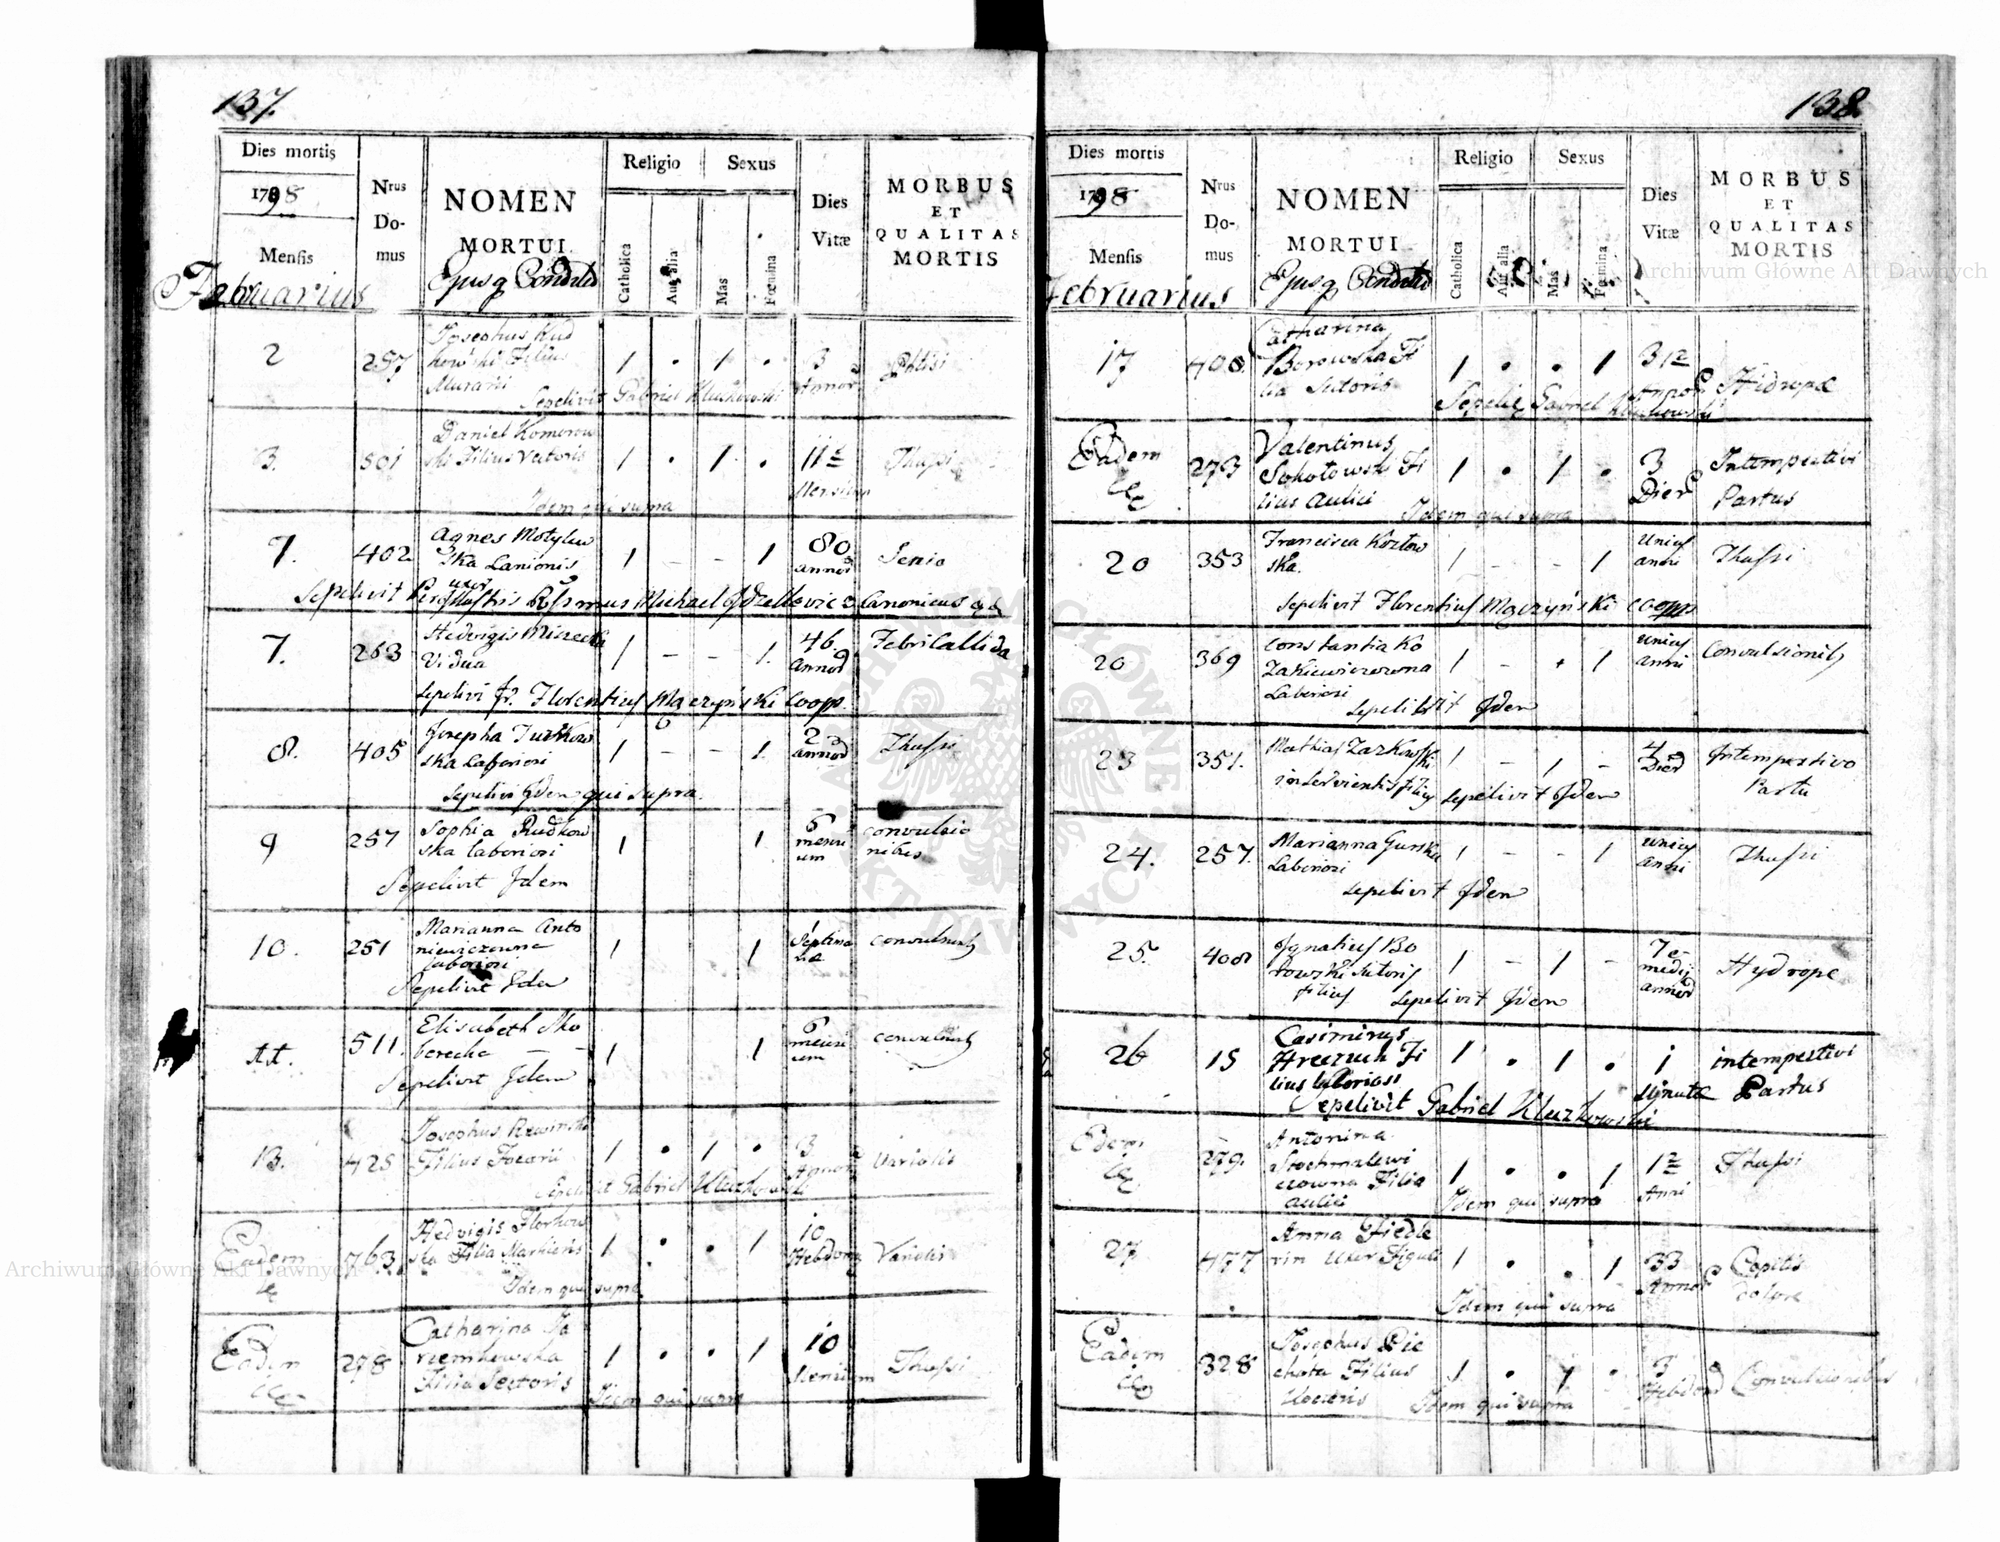 137.
Dies mortis
1798
Mensis
Februarius
Nrus
Do-
mus
NOMEN
MORTUI
Ejusq Conditio
Religio
Catholica
Sexus
Mas
Fœmina
Dies
Vitæ
MORBUS
ET
QUALITAS
MORTIS
2
257
Josephus Kud
kowski Filius
Murarii
1 . 1 .
3
Annor
Phtisi
Sepelivit Gabriel Kluczkowski
3.
501
Daniel Komorow
ski Filius
1 . 1 .
11
Mensium
Thussi
Idem qui supra
7.
402
Agnes Motylew
ska Lanionis
uxor
1 – – 1
80
annor
Senio
Sepelivit Perillustris Rssimus Michael Canonicus
7.
263
Hedvigis
Vidua
1 – – 1.
46.
annor
Febri Callida
Sepelivi fr. Florentius Mączyński Coop.
8.
405
Josepha Turkow
ska Laboriosi
1 – – 1.
2
annor
Thussi
Sepelivi Idem qui supra.
9
257
Sophia Rudkow
ska laboriosi
1 1
6
mensi
um
convulsio
nibus
Sepelivit Idem
10.
251
Marianna Anto
niewiczowna
laboriosi
1 1
Septima
næ
convulsionib
Sepelivit Idem
11.
511.
Elisabeth Sko
berecka — —
1 1
6
mensi
um
convulsionib
Sepelivit Idem
13.
425
Josephus Rzewinski
Filius Focarii
1 . 1 .
3.
Annor
Variolis
Sepelivit Gabriel Kluczkowski
Eadem
763.
Hedvigis Florkow
ska Filia
1 . . 1
10
Hebdom
Variolis
Idem qui supra
Eadem
278
Catharina Ja
rzemkowska
Filia Sectoris
1 . . 1
10
Mensium
Thussi
Idem qui supra
138
Dies mortis
1798
Mensis
Februarius
Nrus
Do-
mus
NOMEN
MORTUI
Ejusq Conditio
Religio
Catholica
Sexus
Mas
Fœmina
Dies
Vitæ
MORBUS
ET
QUALITAS
MORTIS
17
408
Catharina
Borowska Fi
lia Sutoris
1 . . 1
3 12
Annor
Hidrope
Sepeliit Gabriel Kluczkowski
Eadem
273
Valentinus
Sokołowski Fi
lius Aulici
1 . 1 .
3
Dier
Intempestivi
Partus
Idem qui supra
20
353
Francisca Kozłow
ska.
1 – – 1
Unius
anni
Thussi
Sepelivit Florentius Mączyński coop
20
369
Constantia Ko
zakiewiczowna
Laboriosi
1 – . 1
unius
anni
Convulsionib
Sepelivit Idem
23
351.
Mathias Zazkowski
inservientis filius
1 – 1 –
4
Dier
Intempestivo
Partu
Sepelivit Idem
24.
257.
Marianna Gurska
Laboriosi
1 – – 1
unius
anni
Thussi
Sepelivit Idem
25.
408
Ignatius Bo
rowski Sutoris
filius
1 – 1 –
7 e-
medii
annor
Hydrope
Sepelivit Idem
26
15
Casimirus
Fi
lius laboriosi
1 . 1 .
1
Minuta
intempestivi
Partus
Sepelivit Gabriel Kluczkowski
Edem
279.
Antonina
Stochmalewi
czowna Filia
Aulici
1 . . 1
1
Anni
Thussi
Idem qui supra
27
477
Anna Fiedle
rin Uxor Figuli
1 . . 1
33
Annor
Capitis
dolore
Idem qui supra
Eadem
328
Josephus Pie
chota Filius
1 . 1 .
3
Hebdom
Convulsionibus
Idem qui supra
Archiwum Główne Akt Dawnych
Archiwum Główne Akt Dawnych
ARCHIWUM GŁÓWNE AKT DAWNYCH